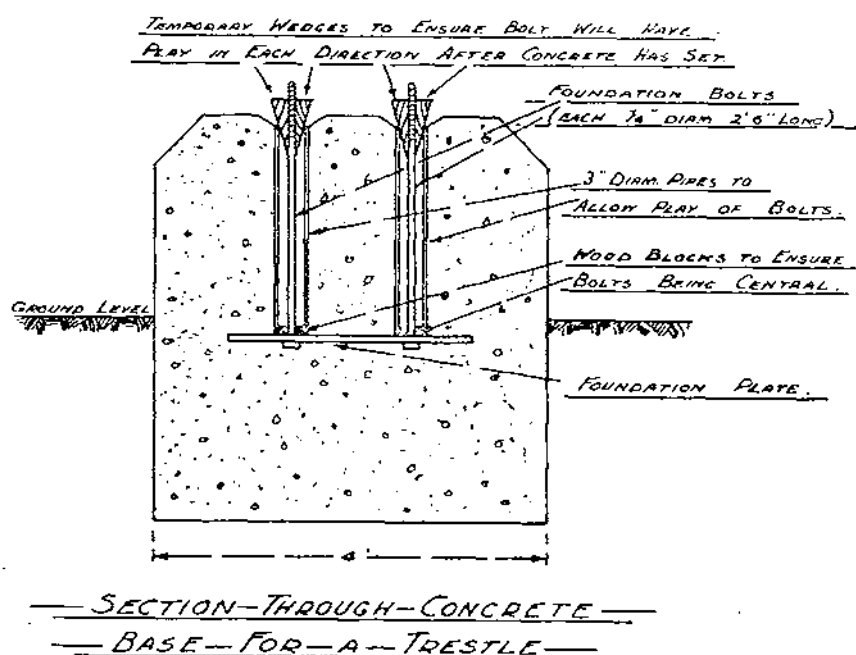 TEMPORARY WEDGES TO ENSURE BOLT WILL HAVE
PLAY IN EACH DIRECTION AFTER CONCRETE HAS SET.
FOUNDATION BOLTS
(EACH DIAM 2'6" LONG)
3" DIAM. PIPES TO
ALLOW PLAY OF BOLTS.
WOOD BLOCKS TO ENSURE
BOLTS BEING CENTRAL.
GROUND LEVEL
FOUNDATION PLATE.
SECTION-THROUGH-CONCRETE
BASE-FOR-A-TRESTLE